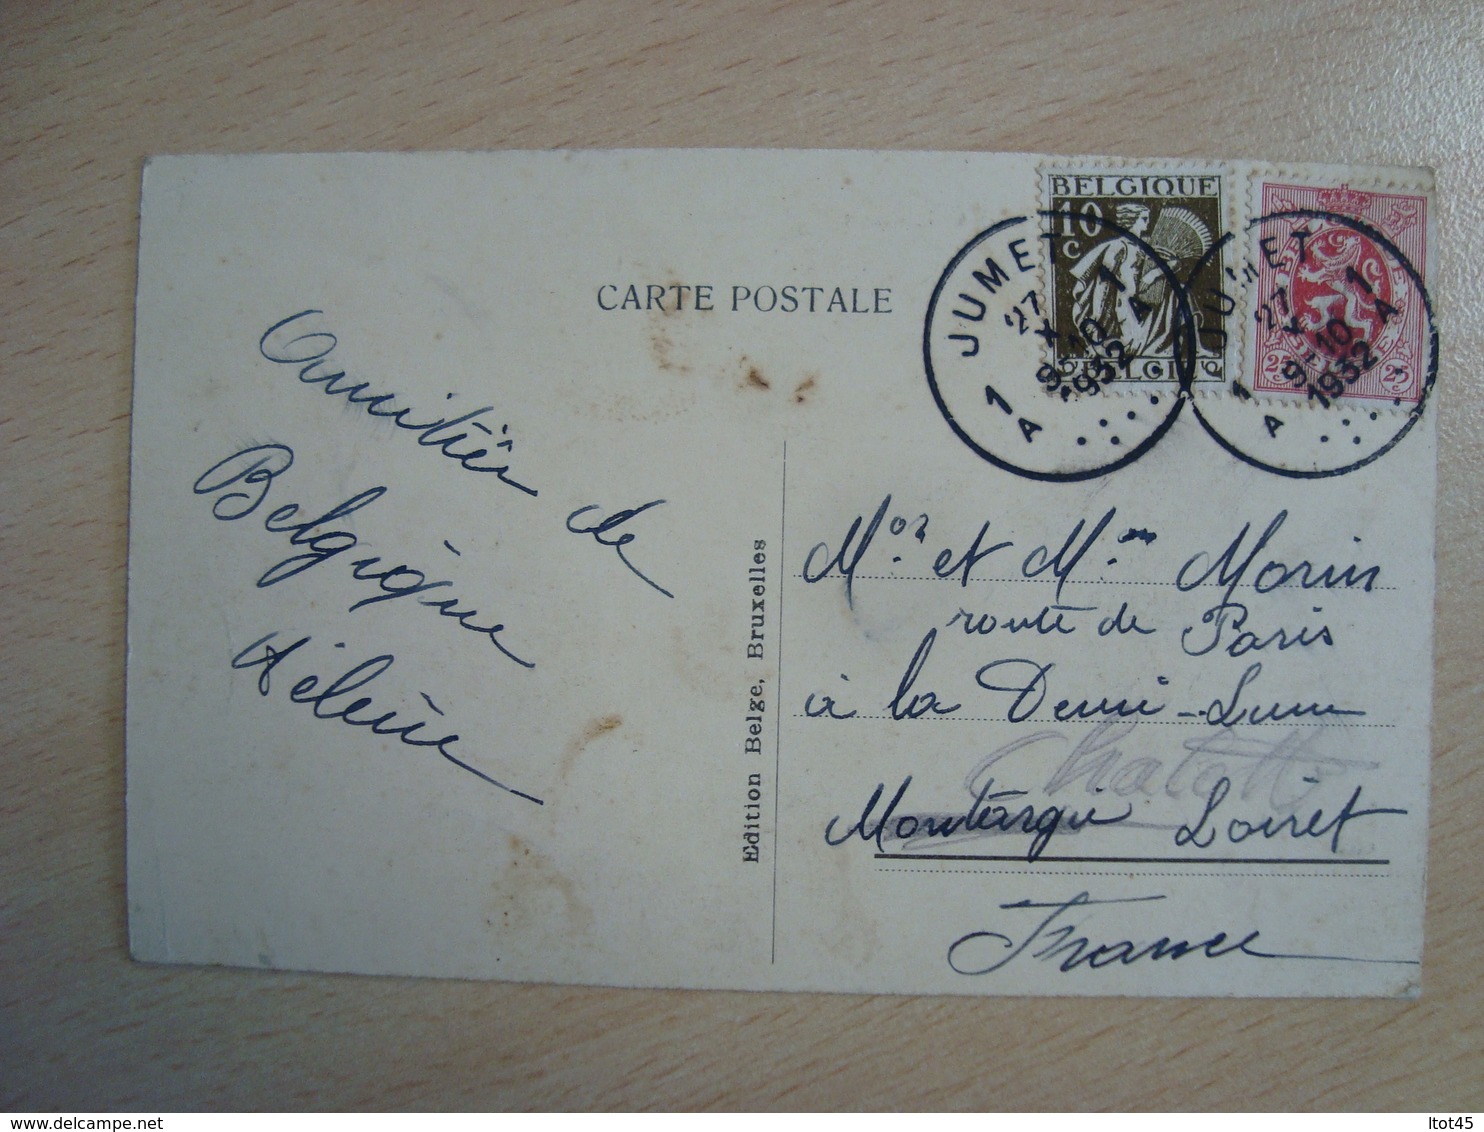 CARTE POSTALE
BELGIQUE
10
c
BELGIE
25
25
JUMET 1
27
X
9-10
1932
1 A
A
JUMET 1
27
X
9-10
1932
1 A
A
Amitiés de
Belgique
Hélène
Edition Belge, Bruxelles
Mor. et M.me Morin
route de Paris
à la Demi-Lune
Montargis Loiret
France
Itot45